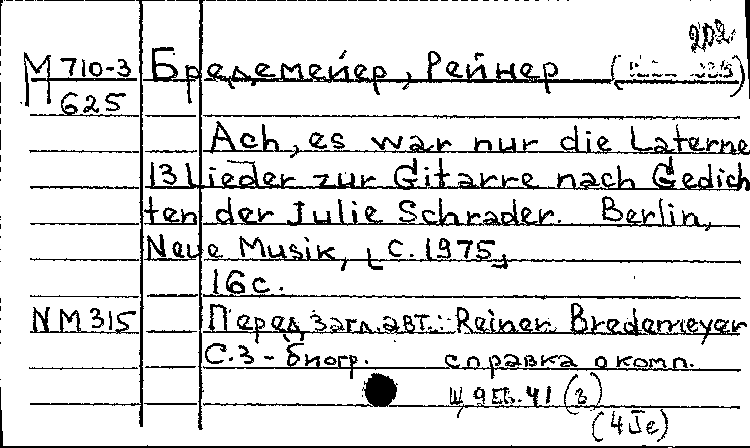 202
М 710-3 Бредемейер, Рейнер
625
Ach, es war nur die Laterne
13 Lieder zur Gitarre nach Gedich
ten der Julie Schrader. Berlin,
Neue Musik, [c. 1975]
16 с.
NM 315 Перед загл. авт.: Reiner Bredemeyer
С. 3 - биогр. справка о комп.
(3)